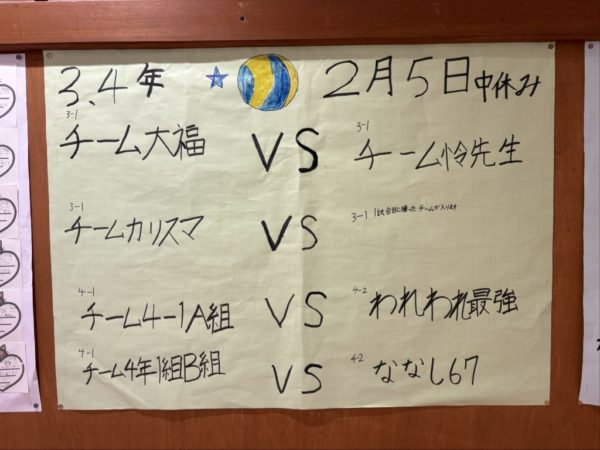 3、4年 2月5日中休み
3-1 3-1
チーム大福 VS チーム怜先生
3-1 3-1 1試合目に勝ったチームが入ります
チームカリスマ VS
4-1 4-2
チーム4-1A組 VS われわれ最強
4-1 4-2
チーム4年1組B組 VS ななし67